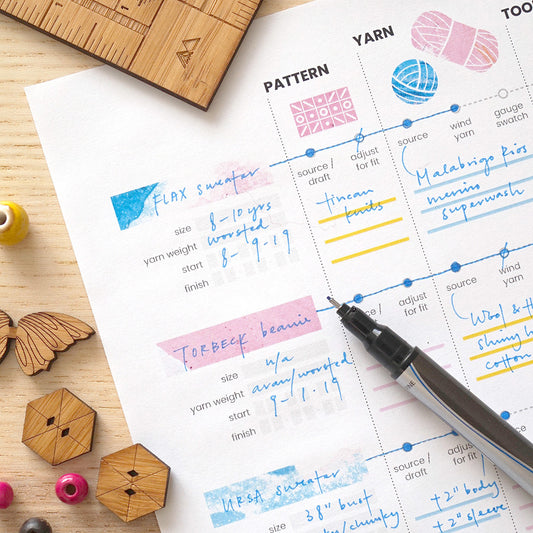 PATTERN
YARN
TOO
source / draft
adjust for fit
source
wind yarn
gauge swatch
FLAX sweater
size 8-10 yrs
yarn weight worsted
start 8- 9-19
finish
tincan knits
Malabrigo Rios
merino
superwash
source / draft
adjust for fit
source
wind yarn
TORBECK beanie
size n/a
yarn weight aran/worsted
start 9-1.19
finish
Wool & H
shiny
cotton
source / draft
adjust for fit
URSA sweater
size 38" bust
/chunky
+2" body
+2" sleeve